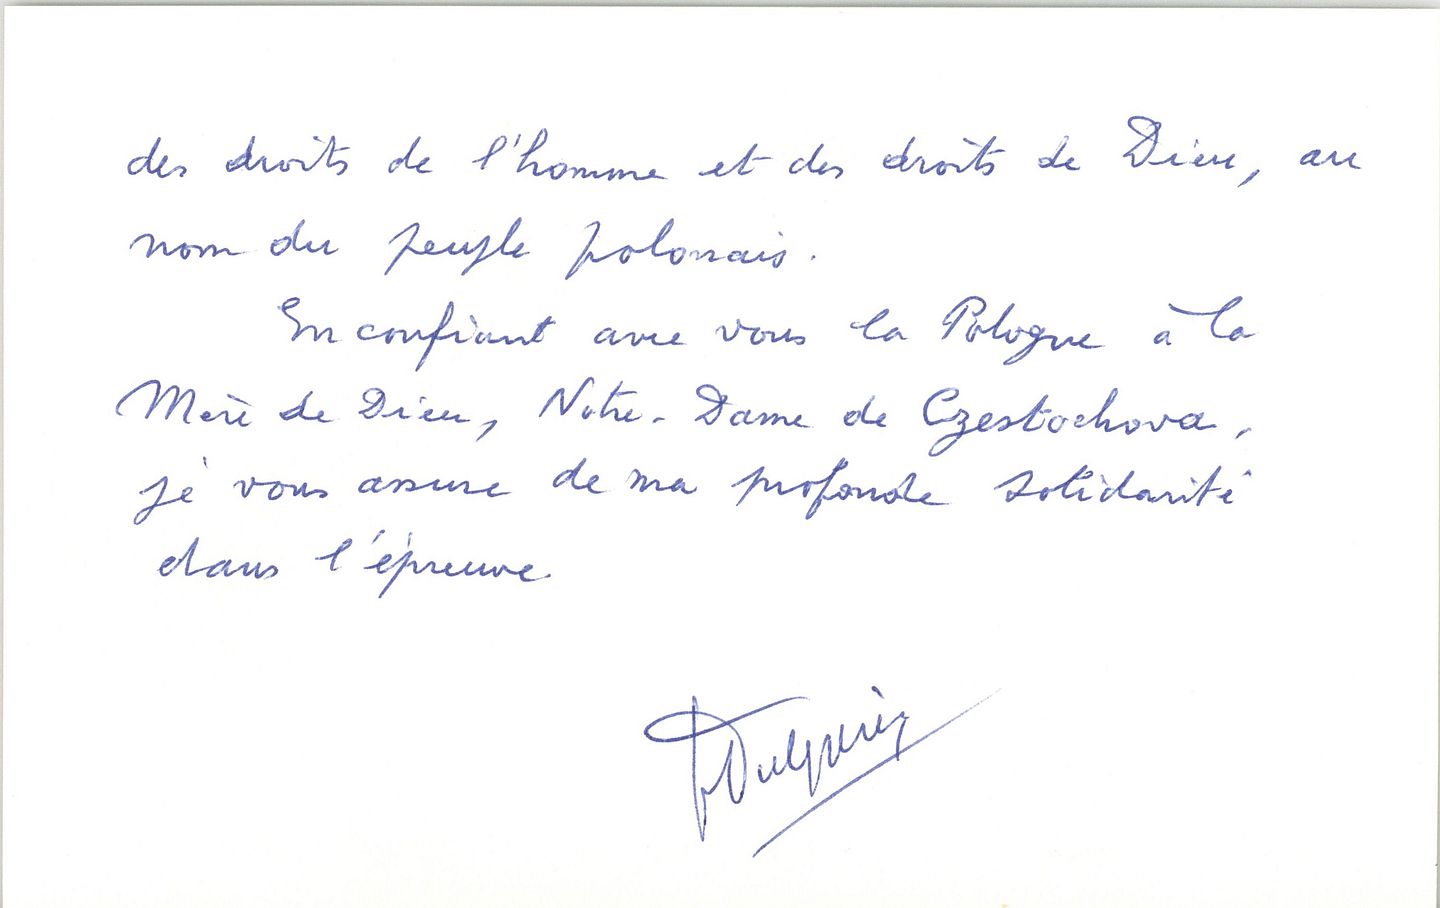 des droits de l'homme et des droits de Dieu, au
nom du peuple polonais.
En confiant avec vous la Pologne à la
Mère de Dieu, Notre-Dame de Czestochova,
je vous assure de ma profonde solidarité
dans l'épreuve